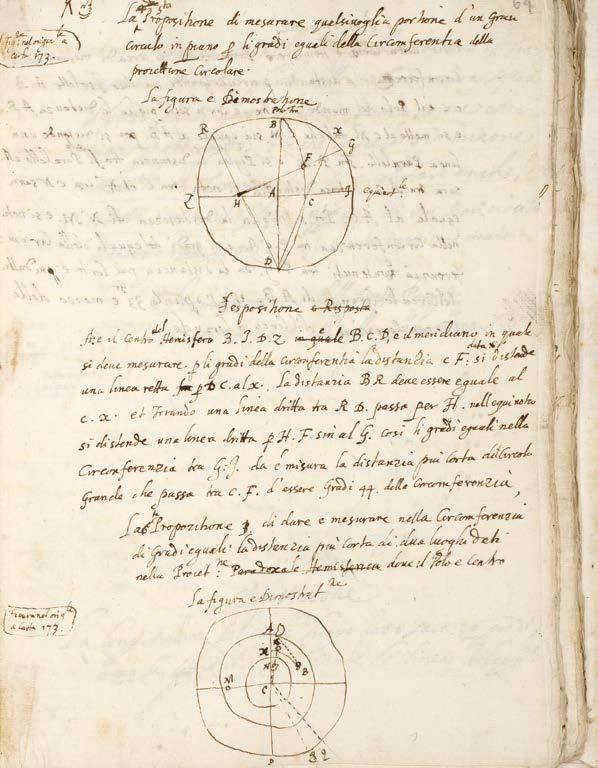 La Propositione di mesurare qualsivoglia portione d'un Gran
circulo in piano p li gradi eguali della Circomferentia della
proiettione Circolare.
a carta 173.
La figura e Demostratione
B
R
X
G
F
Z
H
A
C
I
D
Desposittione e Risposta
A: e il Centro del Hemisfero B. I. D. Z in quale B. C. D, e il meridiano in quale
si deve mesurare p li gradi della Circomferentia la distanzia C F: si distende
una linea retta p D C. al x. La distanzia B R deve essere eguale al
C. X. et tirando una linea dritta tra R D. passa per H. nell equinotio
si distende una linea dritta p H. F. sin al G. cosi li gradi eguali nella
Circonferenzia tra G: I. da e misura la distanzia piu corta del Circolo
Grande che passa tra C. F. d'essere Gradi 44. della Circomferenzia,
La Propozitione di dare e mesurare nella Circomferenzia
di Gradi eguali la distenzia più corta di dua luoghi dati
nella Proiet.ne Paradoxale Hemisferica dove il Polo e Centro
La figura e Dimostrat.ne
Figura nel orig.le
a Carta 173.
A D
C
B